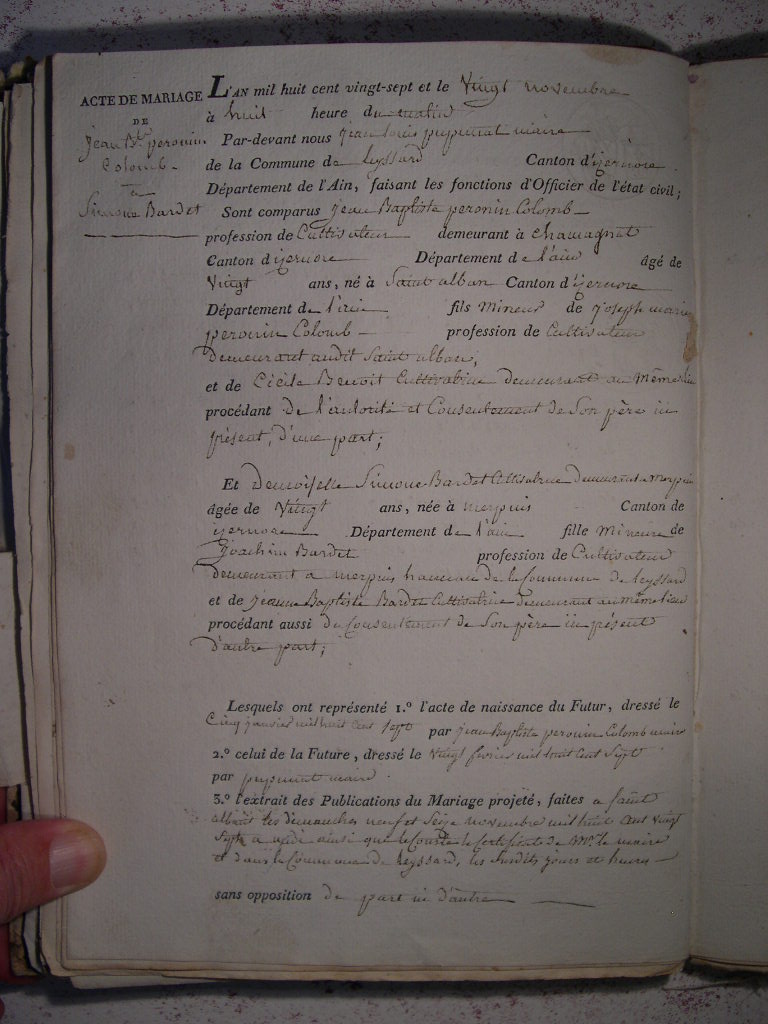 ACTE DE MARIAGE
DE
Jean Bte peronin
Colomb
a
Simone Bardet
L'AN mil huit cent vingt-sept et le Vingt novembre
à huit heure du matin
Par-devant nous jean louis maire
de la Commune de Leyssard Canton d'izernore
Département de l'Ain, faisant les fonctions d'Officier de l'état civil;
Sont comparus jean Baptiste peronin Colomb
profession de Cultivateur demeurant à
Canton d'izernore Département de l'ain âgé de
Vingt ans, né à Saint alban Canton d'izernore
Département de l'ain fils Mineur de joseph marie
peronin Colomb profession de Cultivateur
Demeurant audit Saint alban;
et de Cécile Benoit Cultivatrice demeurant au Même lieu
procédant de l'autorité et Consentement de Son père ici
présent, d'une part;
Et Demoiselle Simone Bardet Cultivatrice Demeurant a merpuis
âgée de Vingt ans, née à merpuis Canton de
izernore Département de l'ain fille Mineure de
Joachim Bardet profession de Cultivateur
demeurant a merpuis hameau de la Commune de Leyssard
et de jeanne Baptiste Bardet Cultivatrice demeurant au même lieu
procédant aussi du Consentement de Son père ici présent
d'autre part;
Lesquels ont représenté 1.º l'acte de naissance du Futur, dressé le
Cinq janvier mil huit Cent Sept par jean Baptiste peronin Colomb maire
2.º celui de la Future, dressé le Vingt fevrier mil huit Cent Sept
par maire
3.º l'extrait des Publications du Mariage projeté, faites a Saint
alban les dimanches neuf et Seize novembre mil huit Cent vingt
Sept a midi ainsi que le Conste le Certificat de Mr. le maire
et dans la Commune de Leyssard, les Susdits jours et heures
sans opposition de part ni d'autre